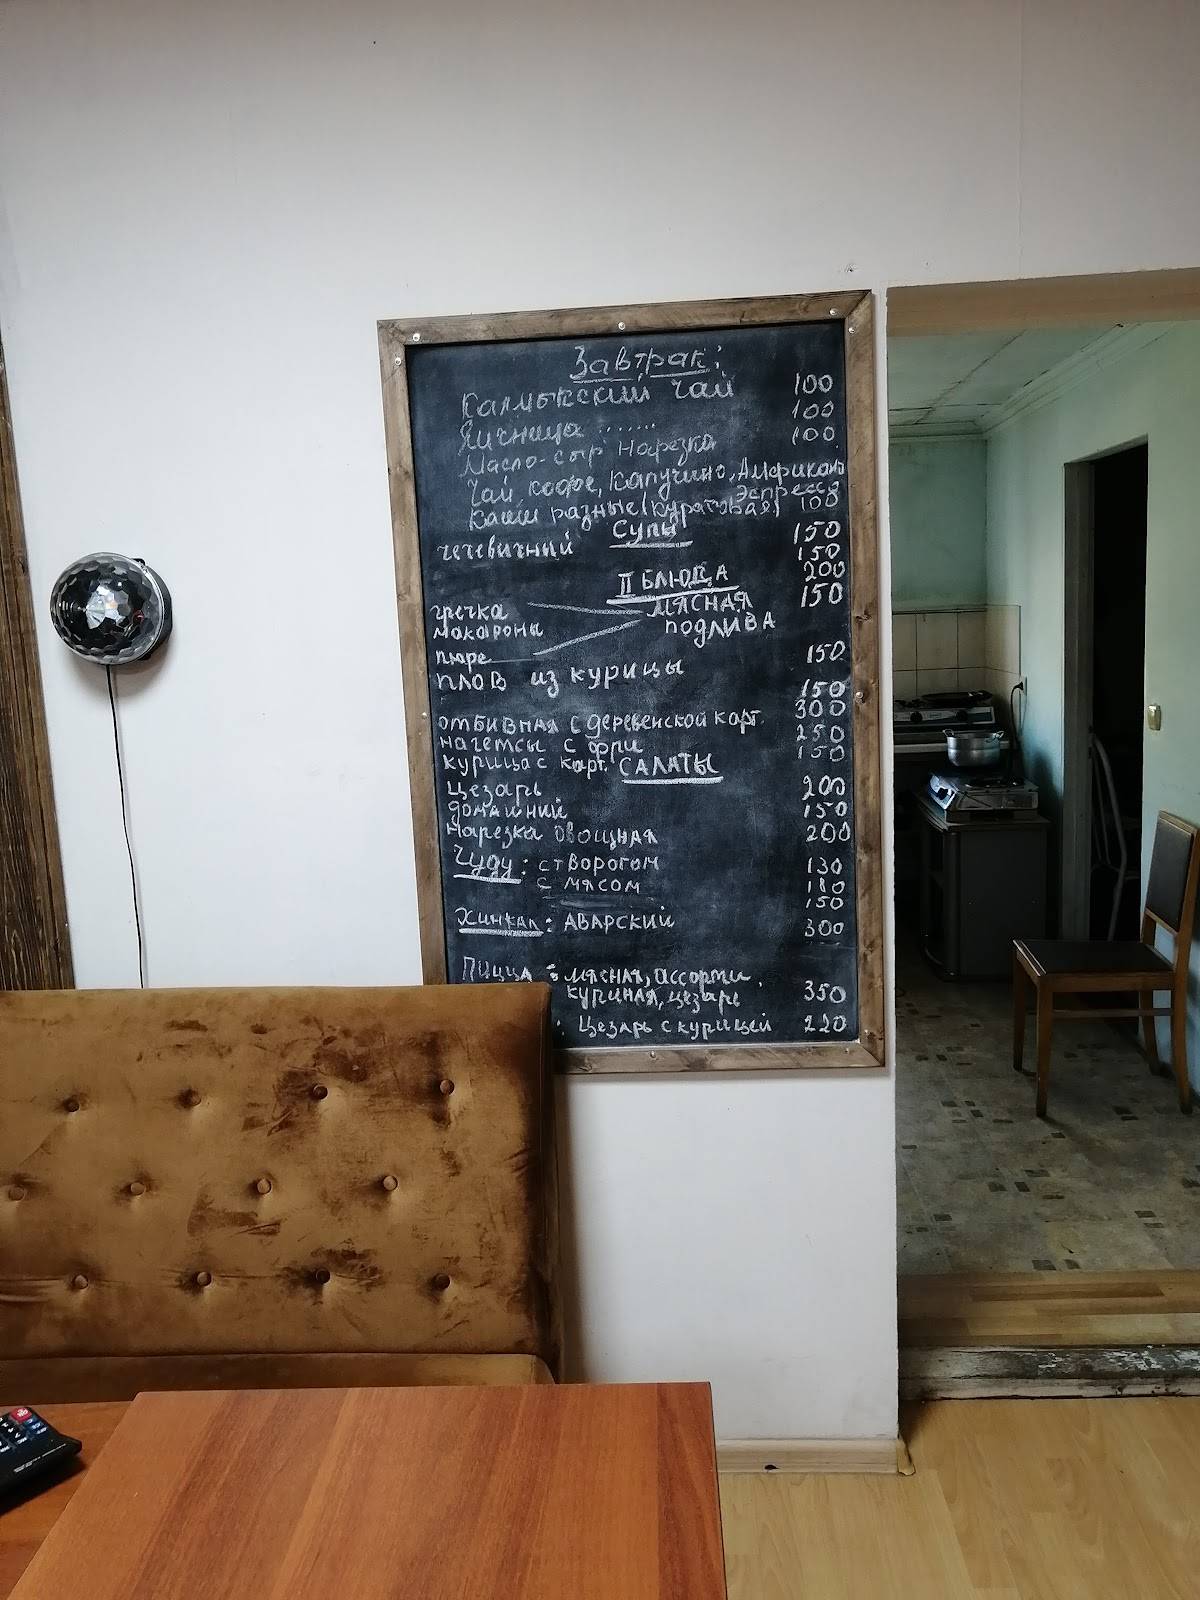 Завтрак:
Калмыкский чай 100
Яичница ....... 100
Масло-сыр Нарезка 100
Чай, кофе, Капучино, Американо
Эспрессо
Каши разные (куратовая) 100
Супы 150
чечевичный 150
II БЛЮДА 200
гречка МЯСНАЯ 150
макароны ПОДЛИВА
пюре 150
плов из курицы
150
отбивная с деревенской карт. 300
нагетсы с фри 250
курица с карт. 150
САЛАТЫ
цезарь 200
домашний 150
Нарезка овощная 200
Чуду: с творогом 130
с мясом 180
150
Хинкал: АВАРСКИЙ 300
Пицца: мясная, ассорти,
куриная, цезарь 350
: Цезарь с курицей 220